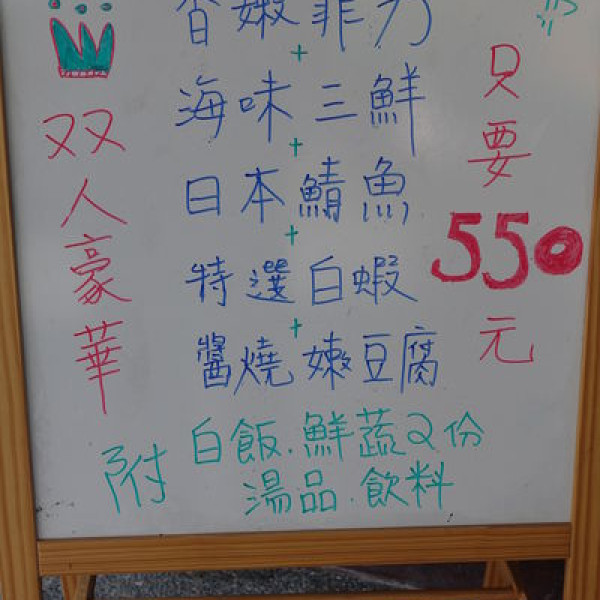 双人豪華
香嫩菲力
+
海味三鮮
+
日本鯖魚
+
特選白蝦
+
醬燒嫩豆腐
只要
550
元
附
白飯.鮮蔬2份
湯品.飲料